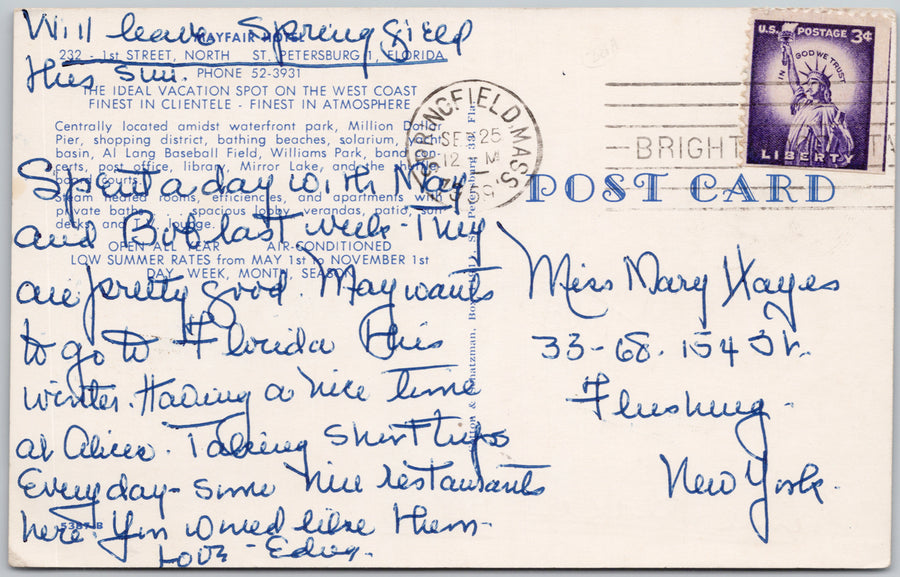 Will leave Springfield
MAYFAIR HOTEL
232 - 1st STREET, NORTH ST. PETERSBURG 1, FLORIDA
this Sun.
PHONE 52-3931
THE IDEAL VACATION SPOT ON THE WEST COAST
FINEST IN CLIENTELE - FINEST IN ATMOSPHERE
Centrally located amidst waterfront park, Million Dollar
Pier, shopping district, bathing beaches, solarium, yacht
basin, Al Lang Baseball Field, Williams Park, band con-
certs, post office, library, Mirror Lake, and the
courts.
Steam heated rooms, efficiencies, and apartments with
private bath, spacious lobby, verandas, patio, sun
decks and lounge.
OPEN ALL YEAR AIR-CONDITIONED
LOW SUMMER RATES from MAY 1st to NOVEMBER 1st
DAY, WEEK, MONTH, SEASON
Spent a day with May
and Bob last week - They
are pretty good. May wants
to go to Florida this
winter. Having a nice time
at Alice. Taking short trips
Every day - some nice restaurants
here. You would like them -
Love - Edna.
5387-B
St. Petersburg 33, Fla.
SPRINGFIELD, MASS.
SEP 25
12 M
U.S. POSTAGE 3¢
IN GOD WE TRUST
LIBERTY
BRIGHT
POST CARD
Miss Mary Hayes
33-68. 154 St.
Flushing -
New York.